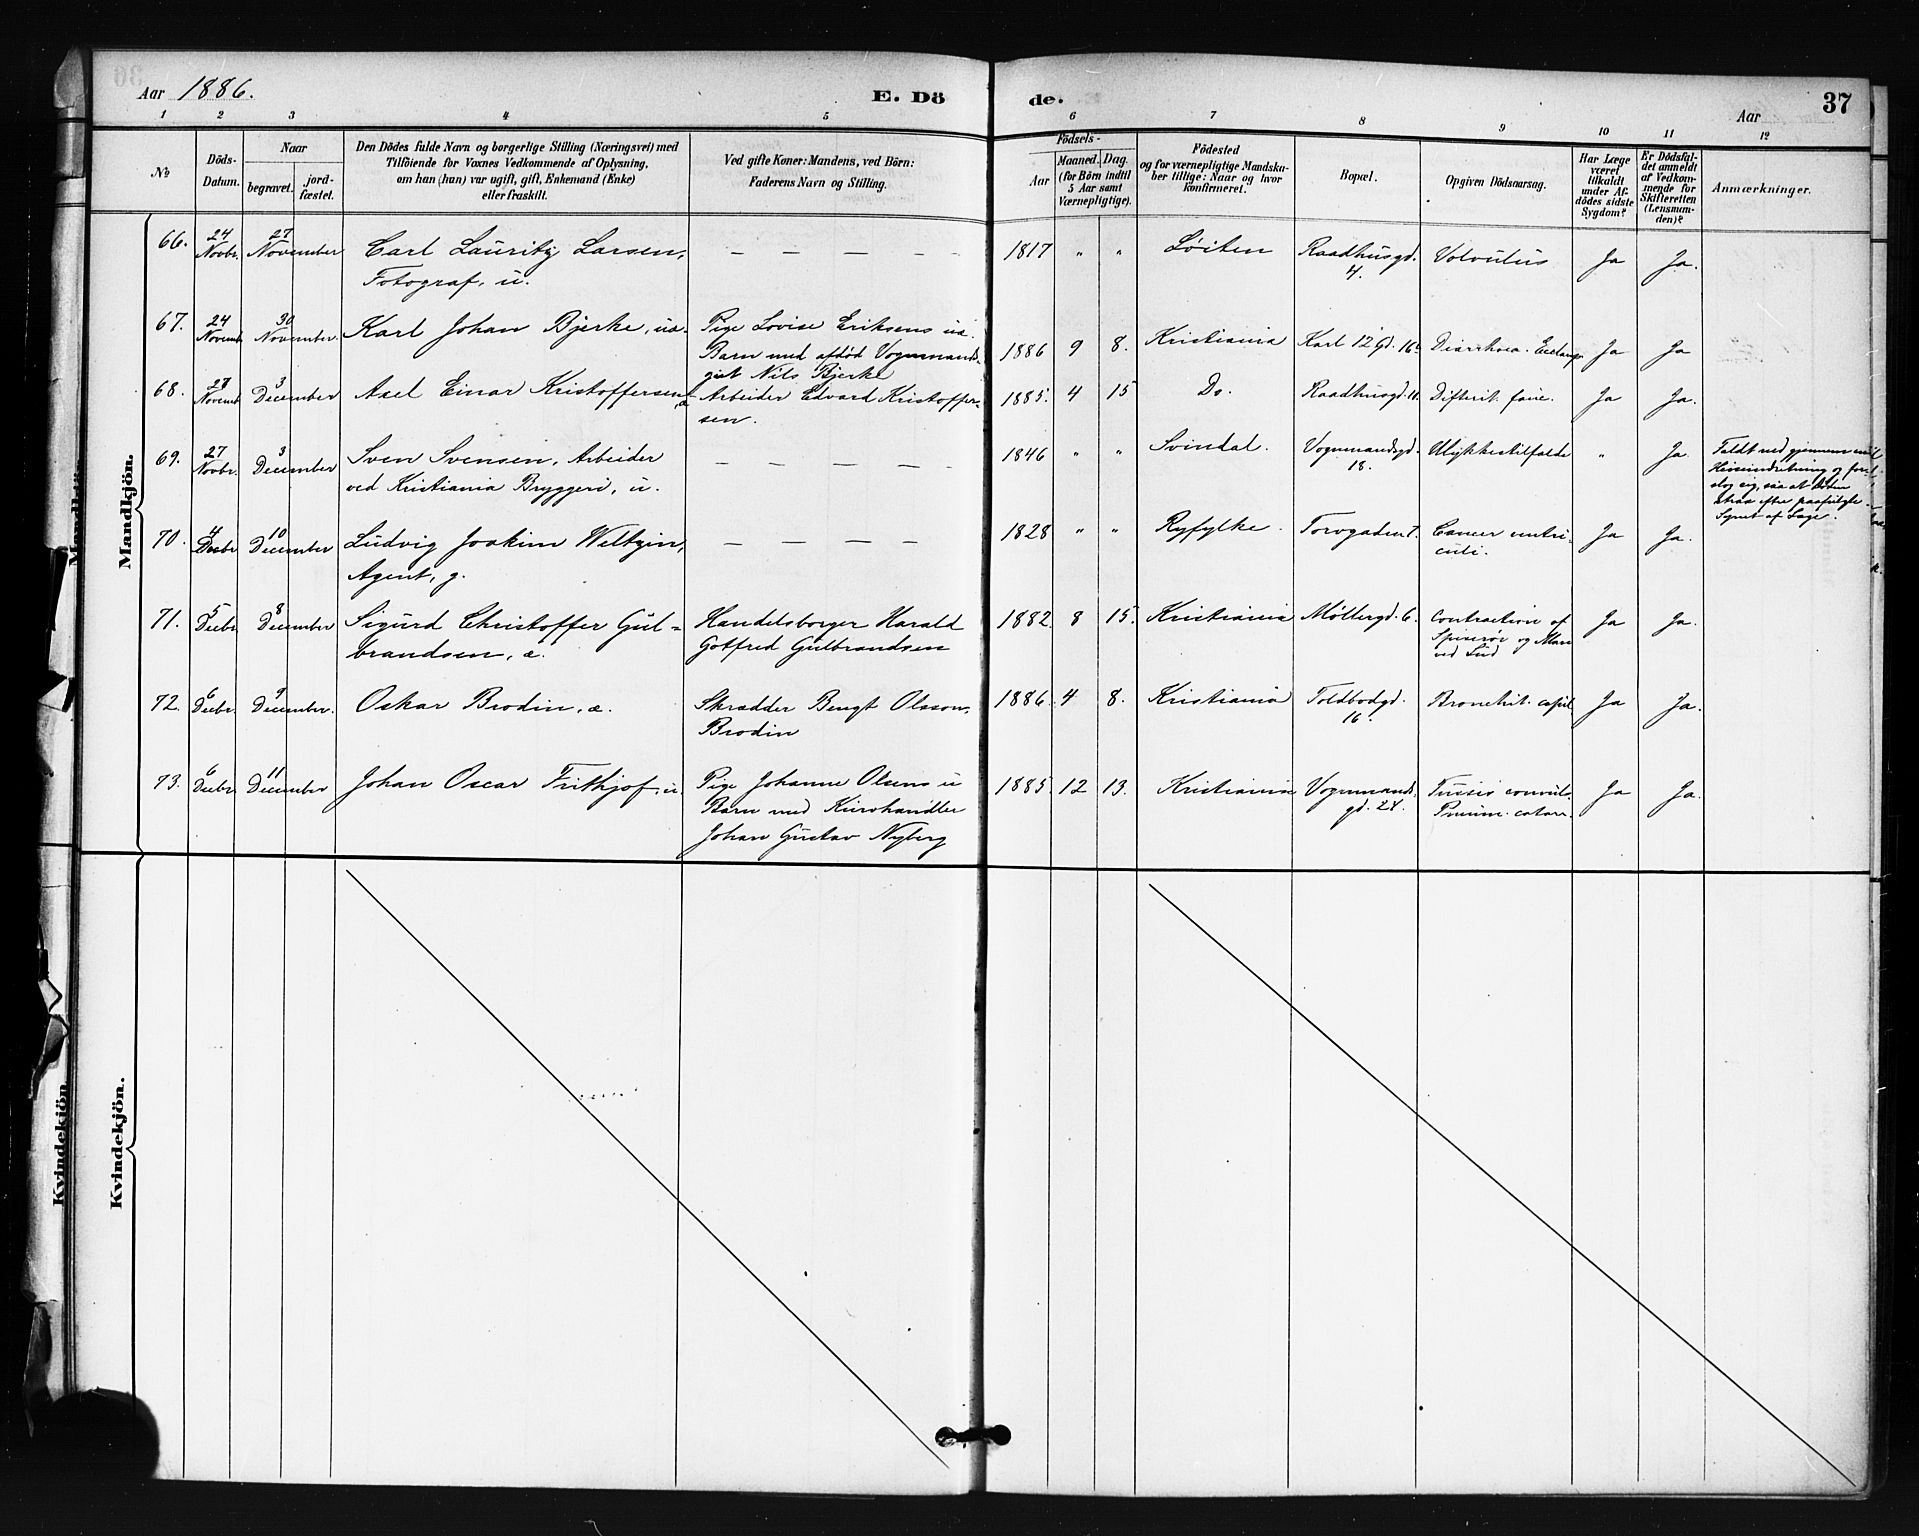 Aar 1886.
E. Dö
de.
Aar
37
1 2 3 4 5 6 7 8 9 10 11 12
№
Döds-
Datum.
Naar
begravet.
jord-
fæstet.
Den Dödes fulde Navn og borgerlige Stilling (Næringsvei) med
Tilföiende for Voxnes Vedkommende af Oplysning,
om han (hun) var ugift, gift, Enkemand (Enke)
eller fraskilt.
Ved gifte Koner: Mandens, ved Börn:
Faderens Navn og Stilling.
Födsels-
Aar
Maaned. Dag.
(for Börn indtil
5 Aar samt
Værnepligtige).
Födested
og for værnepligtige Mandsku-
ber tillige: Naar og hvor
konfirmeret.
Bopæl.
Opgiven Dödsaarsag.
Har Læge
været
tilkaldt
under Af-
dödes sidste
Sygdom?
Er Dödsfal-
det anmeldt
af Vedkom-
mende for
Skifteretten
(Lensman-
den)?
Anmærkninger.
Mandkjön.
66. 24 Novbr. 27 November Carl Lauritz Larsen, — — — — — 1817 " " Löiten Raadhusgd. Volvulus Ja Ja.
Fotograf, u. 4.
67. 24 Novemb. 30 November. Karl Johan Bjerke, uæ. Pige Lovise Eriksens uæ. 1886 9 8. Kristiania Karl 12 Gd. 16 Diarrhoea. Eclamps. Ja Ja
Barn med afdöd Vognmands-
gut Nils Bjerke
68. 28 Novemb. 3 December Axel Einar Kristoffersen, æ Arbeider Edvard Kristoffer- 1885. 4 15 Do. Raadhusgd. 11. Difterit. Ja Ja.
sen.
69. 27 Novbr. 3 December Sven Svensen, Arbeider — — — — — 1846 " " Svindal. Vognmandsgd. Ulykkestilfælde " Ja. Faldt ned gjennem en
ved Kristiania Bryggeri, u. 18. slog sig, saa at Döden
strax efter paafulgte.
Synet af Læge.
70. 4 Decbr 10 December Ludvig Joakim Weltzin, — — — — 1828 " " Ryfylke. Torvgaden 7. Cancer ventri- Ja Ja.
Agent, g. culi.
71. 5 Decbr 8 December Sigurd Christoffer Gul- Handelsborger Harald 1882 8 15. Kristiania Möllergd. 6. Contraction af Ja Ja.
brandsen, æ. Gotfred Gulbrandsen Spiserör og Mave
ved Lud
72. 6 Decbr. 9 December. Oskar Brodin, æ. Skrædder Bengt Olsson, 1886. 4 8. Kristiania Toldbodgd. Bronchit. capil. Ja Ja.
Brodin 16.
73. 6 Decbr. 11 December Johan Oscar Frithjof, u. Pige Johanne Olsens u 1885. 12 13. Kristiania Vognmands- Tussis convuls. Ja Ja.
Barn med Kurvhandler gd. 24. Pneum. catarr.
Johan Gustav Nyberg
Kvindekjön.
Mandkjön
Kvindekjön